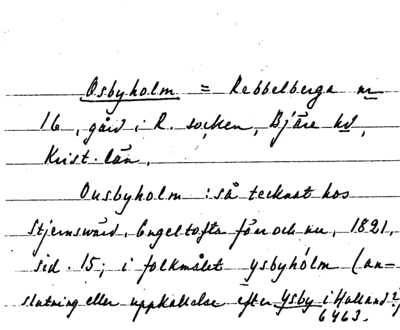 Osbyholm = Rebbelberga nr
16, gård i R. socken, Bjäre hd,
Krist. län.
Ousbyholm : så tecknat hos
Stjernswärd, Engeltofta förr och nu, 1821,
sid. 15; i folkmålet ysbyhólm (an-
slutning eller uppkallelse efter Ysby i Halland?)
6463.